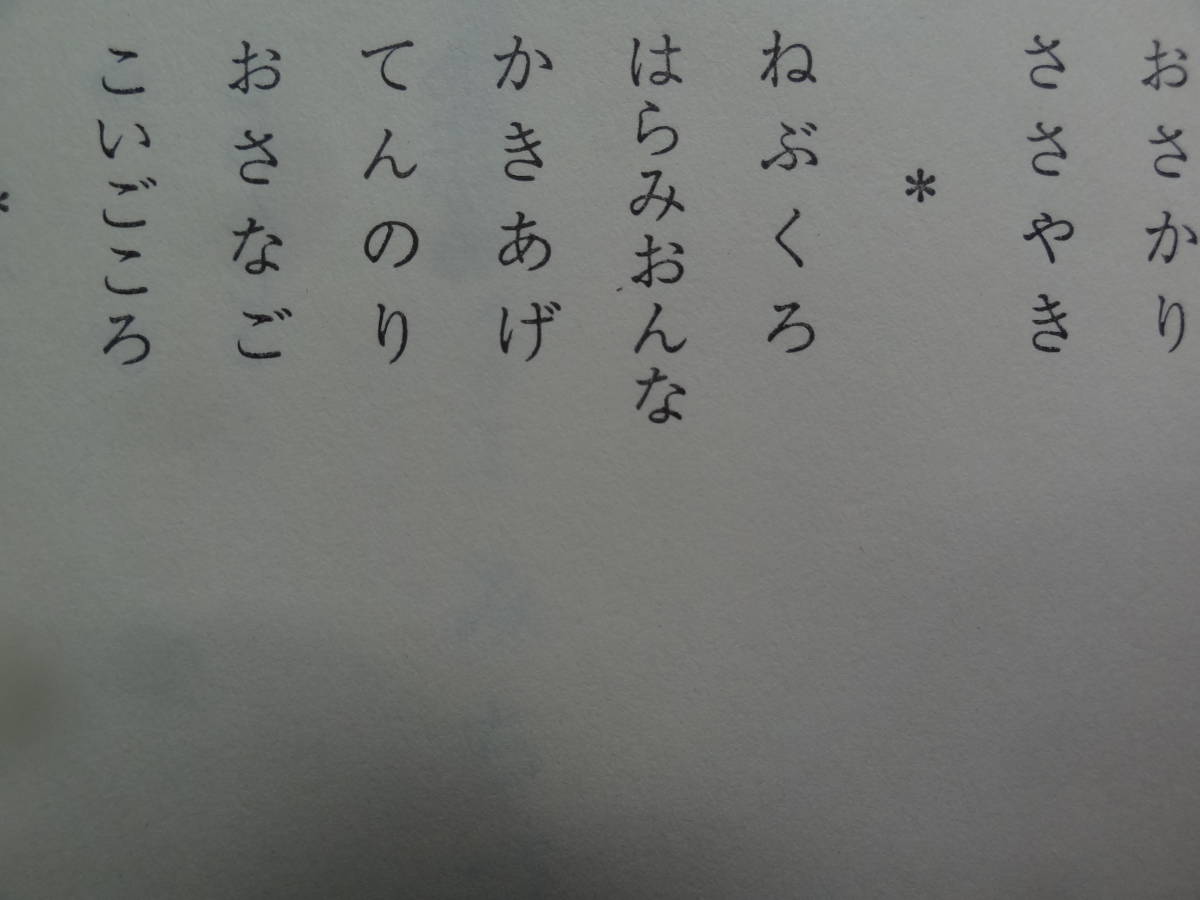 おさかり
ささやき
*
ねぶくろ
はらみおんな
かきあげ
てんのり
おさなご
こいごころ
*